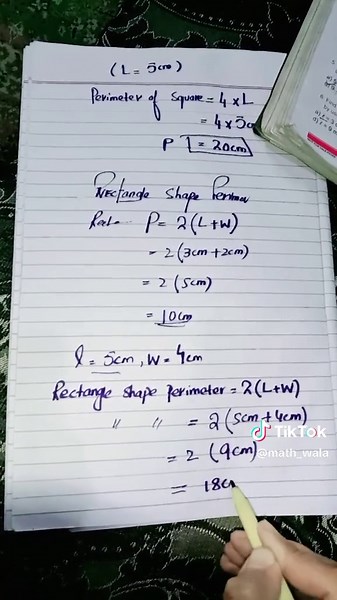 (L = 5cm)
Perimeter of Square = 4 x L
= 4 x 5c
P = 20cm
Rectangle Shape Perime
Rect- P = 2(L+W)
= 2(3cm+2cm)
= 2(5cm)
= 10cm
l = 5cm, W = 4cm
Rectange shape Perimeter = 2(L+W)
" " = 2(5cm+4cm)
= 2 (9cm)
= 18cm
TikTok
@math_wala